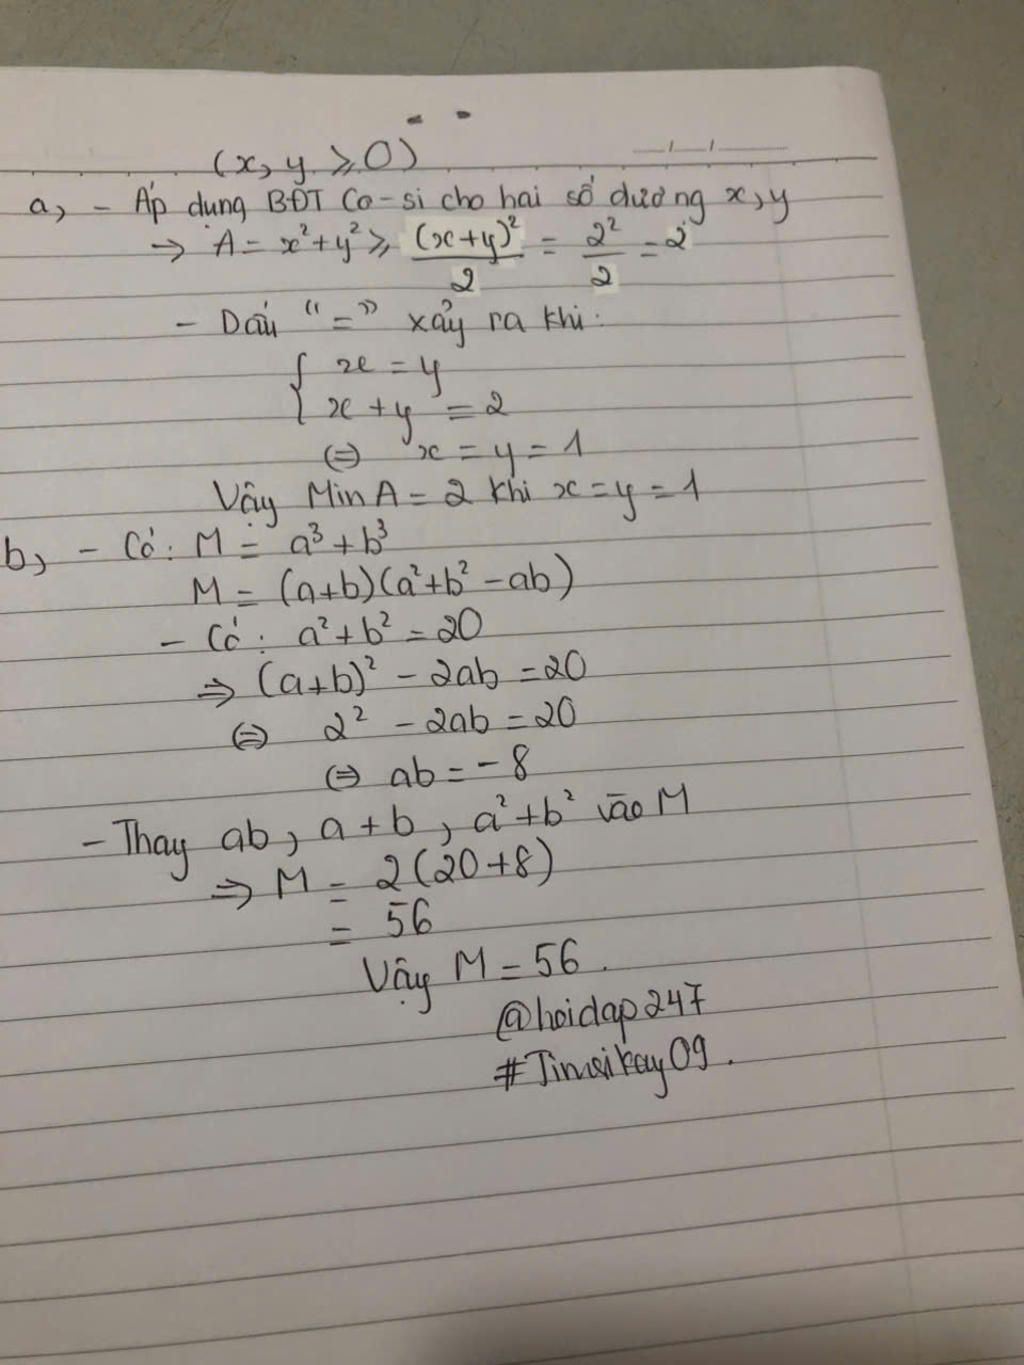 (x, y ⩾ 0)
a, - Áp dụng BĐT Cô-si cho hai số dương x, y
→ A = x² + y² ⩾ (x+y)²/2 = 2²/2 = 2
- Dấu "=" xảy ra khi:
{ x = y
x + y = 2
⇔ x = y = 1
Vậy Min A = 2 khi x = y = 1
b, - Có: M = a³ + b³
M = (a+b)(a²+b²-ab)
- Có: a² + b² = 20
⇒ (a+b)² - 2ab = 20
⇔ 2² - 2ab = 20
⇔ ab = -8
- Thay ab, a+b, a²+b² vào M
⇒ M = 2(20+8)
= 56
Vậy M = 56.
@hoidap247
#Timeikay09.